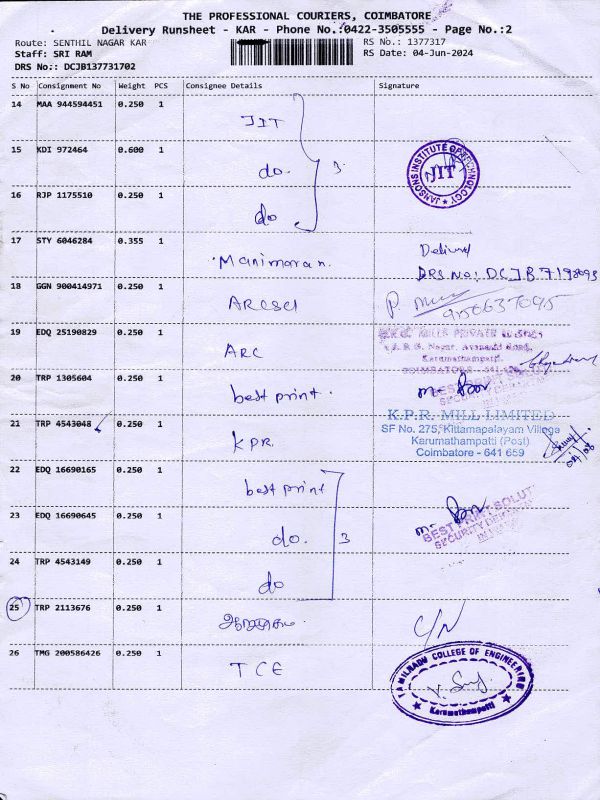 THE PROFESSIONAL COURIERS, COIMBATORE
Delivery Runsheet - KAR - Phone No.:0422-3505555 - Page No.:2
Route: SENTHIL NAGAR KAR RS No.: 1377317
Staff: SRI RAM RS Date: 04-Jun-2024
DRS No.: DCJB137731702
S No Consignment No Weight PCS Consignee Details Signature
14 MAA 944594451 0.250 1 JIT
15 KDI 972464 0.600 1 do. 3
JANSONS INSTITUTE OF TECHNOLOGY
JIT
16 RJP 1175510 0.250 1 do
17 STY 6046284 0.355 1 Manimaran.
DRS No: DCJB7198093
18 GGN 900414971 0.250 1
9150637095
19 EDQ 25190829 0.250 1 ARC
MILLS PRIVATE
Karumathampatti
COIMBATORE
20 TRP 1305604 0.250 1 best print.
21 TRP 4543048 0.250 1 KPR.
K.P.R. MILL LIMITED
SF No. 275, Kittamapalayam Village
Karumathampatti (Post)
Coimbatore - 641 659
22 EDQ 16690165 0.250 1 best print
23 EDQ 16690645 0.250 1 do. 3
BEST PRINT SOLUT
24 TRP 4543149 0.250 1 do
25 TRP 2113676 0.250 1 C/N
26 TMG 200586426 0.250 1 TCE
TAMILNADU COLLEGE OF ENGINEERING
Karumathampatti